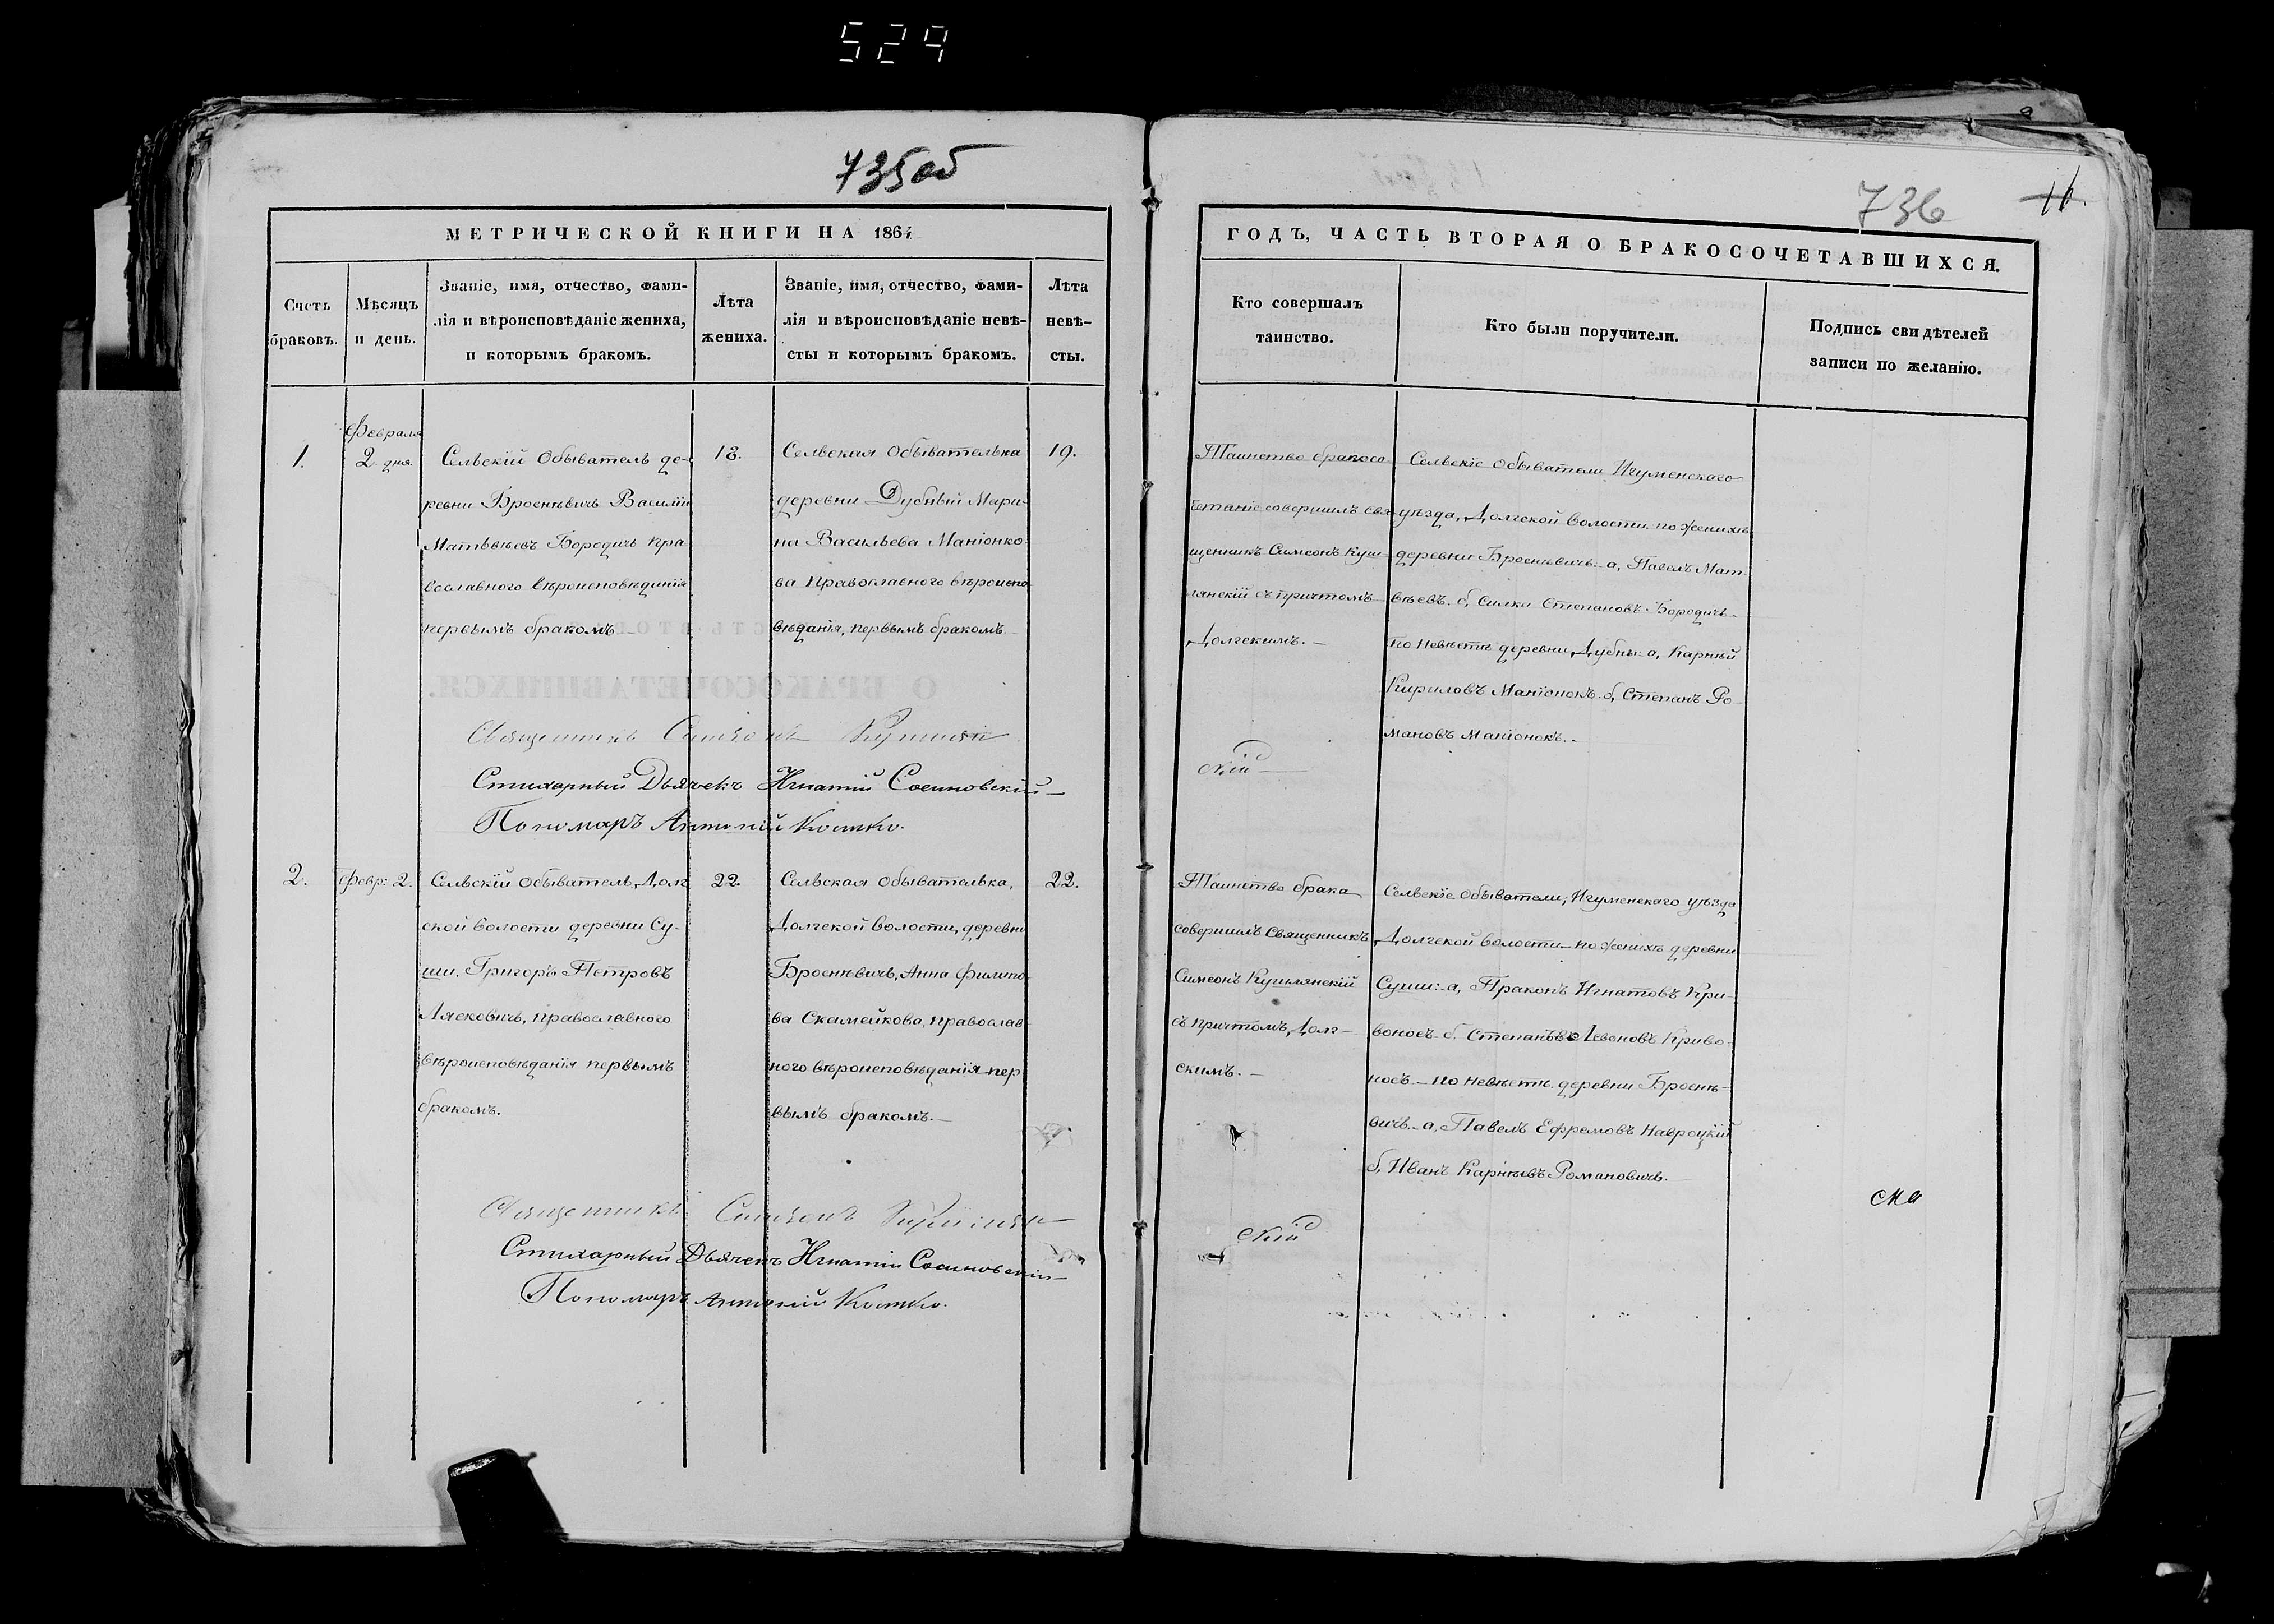 529
735об
МЕТРИЧЕСКОЙ КНИГИ НА 1864
Счетъ браковъ.
Мѣсяцъ и день.
Званіе, имя, отчество, фами-
лія и вѣроисповѣданіе жениха,
и которымъ бракомъ.
Лѣта жениха.
Званіе, имя, отчество, фами-
лія и вѣроисповѣданіе невѣ-
сты и которымъ бракомъ.
Лѣта
невѣ-
сты.
1.
Февраля
2 дня.
Сельскій Обыватель де-
ревни Броснѣвичь Василій
Матѳѣевъ Бородичь пра-
вославного вѣроисповѣданія
первымъ бракомъ
18.
Сельская Обывателька
деревни Дубный Мари-
на Васильева Маніонко-
ва Православного вѣроиспо-
вѣданія, первымъ бракомъ.
19.
Священникъ Симеонъ Кушлян
Стихарный Дьячекъ Игнатій Сосиновскій
Пономарь Антоній Костко.
2.
Февр: 2.
Сельскій Обыватель, Долг
ской волости деревни Су-
ши, Григоръ Петровъ
Лясковичь, православного
вѣроисповѣданія первымъ
бракомъ.
22
Сельская обывателька,
Долгской волости, деревни
Броснѣвичь, Анна Филипо-
ва Скамейкова, православ-
ного вѣроисповѣданія пер
вымъ бракомъ.
22.
Священникъ Симеонъ Кушлян
Стихарный Дьячекъ Игнатій Сосиновскій
Пономарь Антоній Костко.
736
ГОДЪ, ЧАСТЬ ВТОРАЯ О БРАКОСОЧЕТАВШИХСЯ.
Кто совершалъ
таинство.
Кто были поручители.
Подпись свидѣтелей
записи по желанію.
Таинство бракосо
четаніе совершилъ свя
щенникъ Симеонъ Куш-
лянскій съ притчомъ
Долгскимъ.
Сельскіе обыватели Игуменскаго
уѣзда, Долгской волости по женихѣ
деревни Броснѣвичь а, Павелъ Мат-
вѣевъ. б, Силка Степановъ Бородичь
по невѣстѣ деревни Дубны а, Карнѣй
Кириловъ Маніонокъ. б, Степанъ Ро-
мановъ Маніонокъ.
скій
Таинство брака
совершилъ Священникъ
Симеонъ Кушлянскій
съ притчомъ Долг-
скимъ.
Сельскіе обыватели, Игуменскаго уѣзда
Долгской волости по женихѣ деревни
Суши: а, Праконъ Игнатовъ Кри-
воносъ б. Степанъ Левоновъ Криво-
носъ по невѣстѣ деревни Броснѣ-
вичь а, Павелъ Ефремовъ Навроцкій
б, Иванъ Карнѣевъ Романовичь.
скій
ска